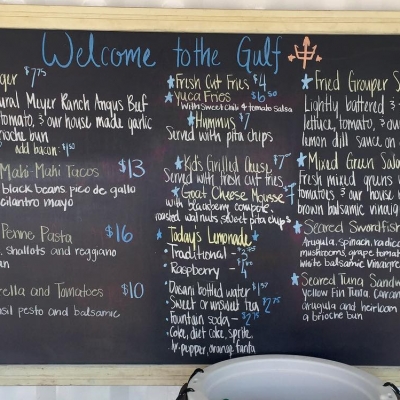 Welcome to the Gulf
ger $7.75
ural Meyer Ranch Angus Beef
tomato, & our house made garlic
rioche bun
add bacon - $1.50
Mahi-Mahi Tacos $13
black beans, pico de gallo
cilantro mayo
Penne Pasta $16
, shallots and reggiano
an
rella and Tomatoes $10
asil pesto and balsamic
Fresh Cut Fries $4
Yuca Fries $6.50
with Sweet Chili & tomato Salsa
Hummus $7
Served with pita chips
Kids Grilled Cheese $7
Served with fresh cut fries
Goat Cheese Mousse
with blackberry compote,
roasted walnuts, sweet pita chips
Today's Lemonade
• Traditional -
• Raspberry -
• Dasani bottled water $1.50
• Sweet or unsweet tea $2.75
• Fountain soda - $2.75
• Coke, diet coke, sprite,
dr. pepper, orange fanta
Fried Grouper S
Lightly battered &
lettuce, tomato, & ou
lemon dill sauce on
Mixed Green Sala
Fresh mixed greens
tomatoes & our house
brown balsamic vinaig
Seared Swordfish
Arugula, spinach, radicc
mushrooms, grape tomat
white balsamic vinaigre
Seared Tuna Sandw
yellow fin tuna, caram
arugula and heirloom
a brioche bun